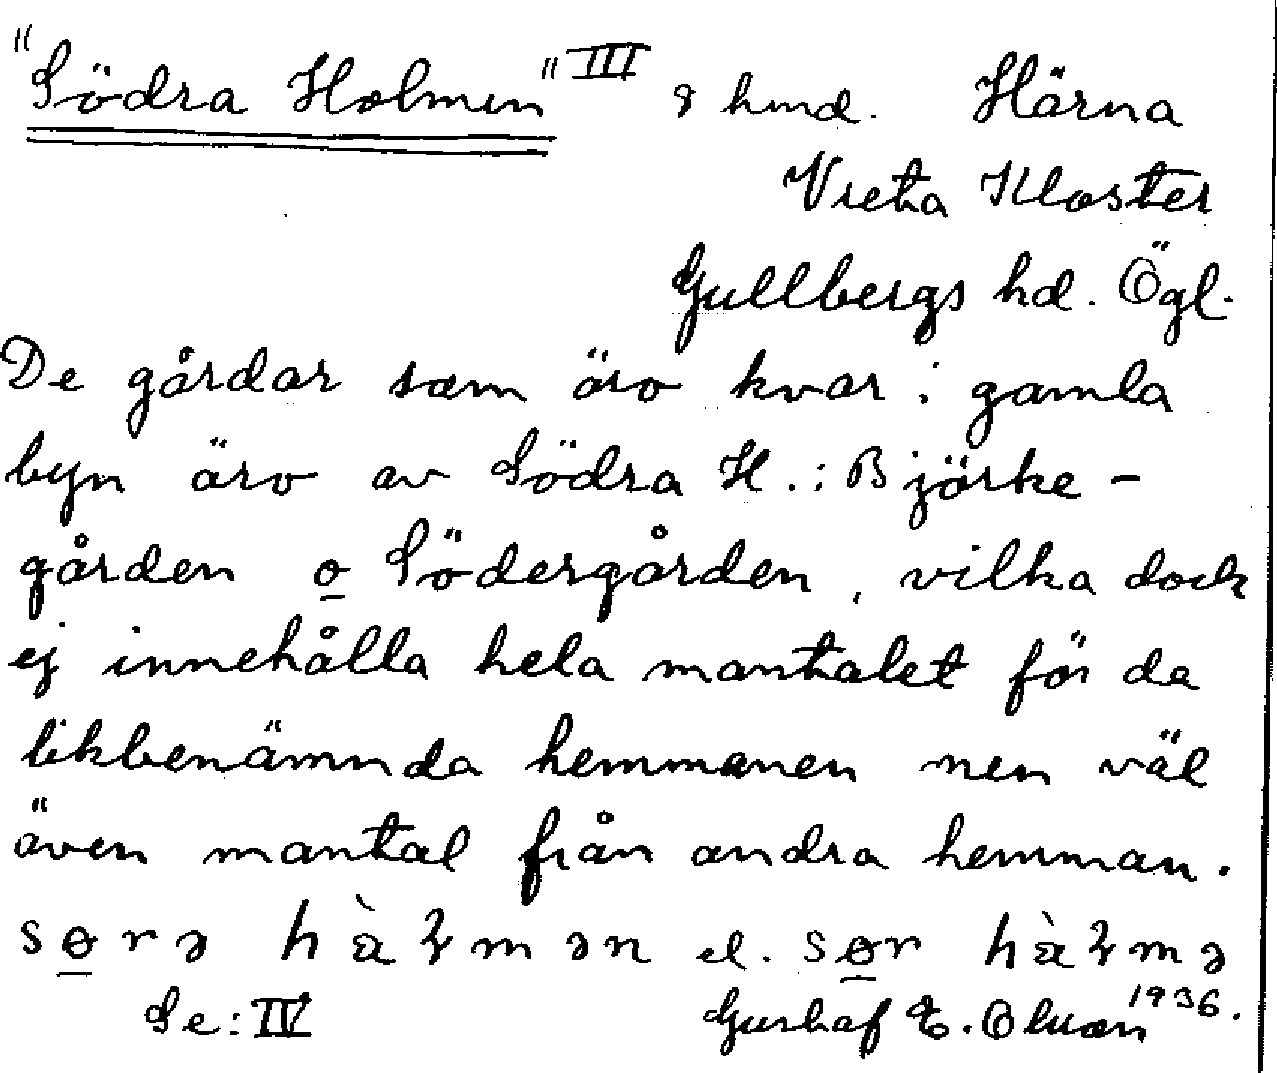 "Södra Holmen" III 8 hmd. Härna
Vreta Kloster
Gullbergs hd. Ögl.
De gårdar som äro kvar i gamla
byn äro av Södra H.: Björke-
gården o Södergården, vilka dock
ej innehålla hela mantalet för da
likbenämnda hemmanen men väl
även mantal från andra hemman.
Se: IV Gustaf E. Olsson 1936.